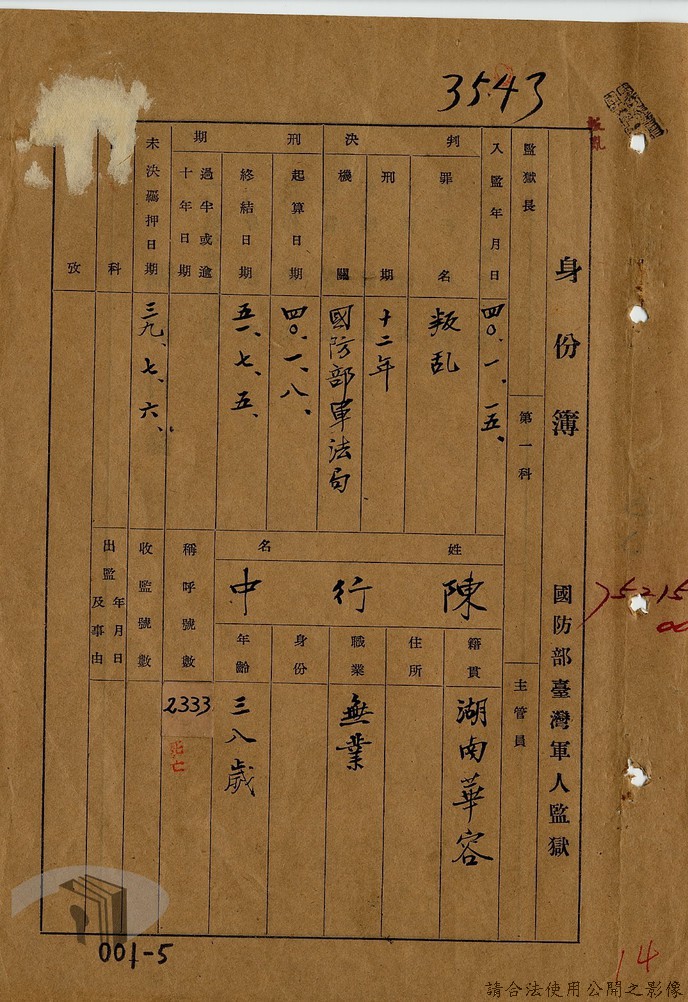 3543
叛亂
身份簿
國防部臺灣軍人監獄
監獄長
第一科
主管員
入監年月日
四〇、一、一五、
判決
罪名
叛乱
刑期
十二年
機關
國防部軍法局
刑期
起算日期
四〇、一、八、
終結日期
五一、七、五、
過半或逾十年日期
未決羈押日期
三九、七、六、
科
攷
姓名
陳行中
籍貫
湖南華容
住所
職業
無業
身份
年齡
三八歲
稱呼號數
2333
死亡
收監號數
出監年月日及事由
75215
00
14
001-5
請合法使用公開之影像